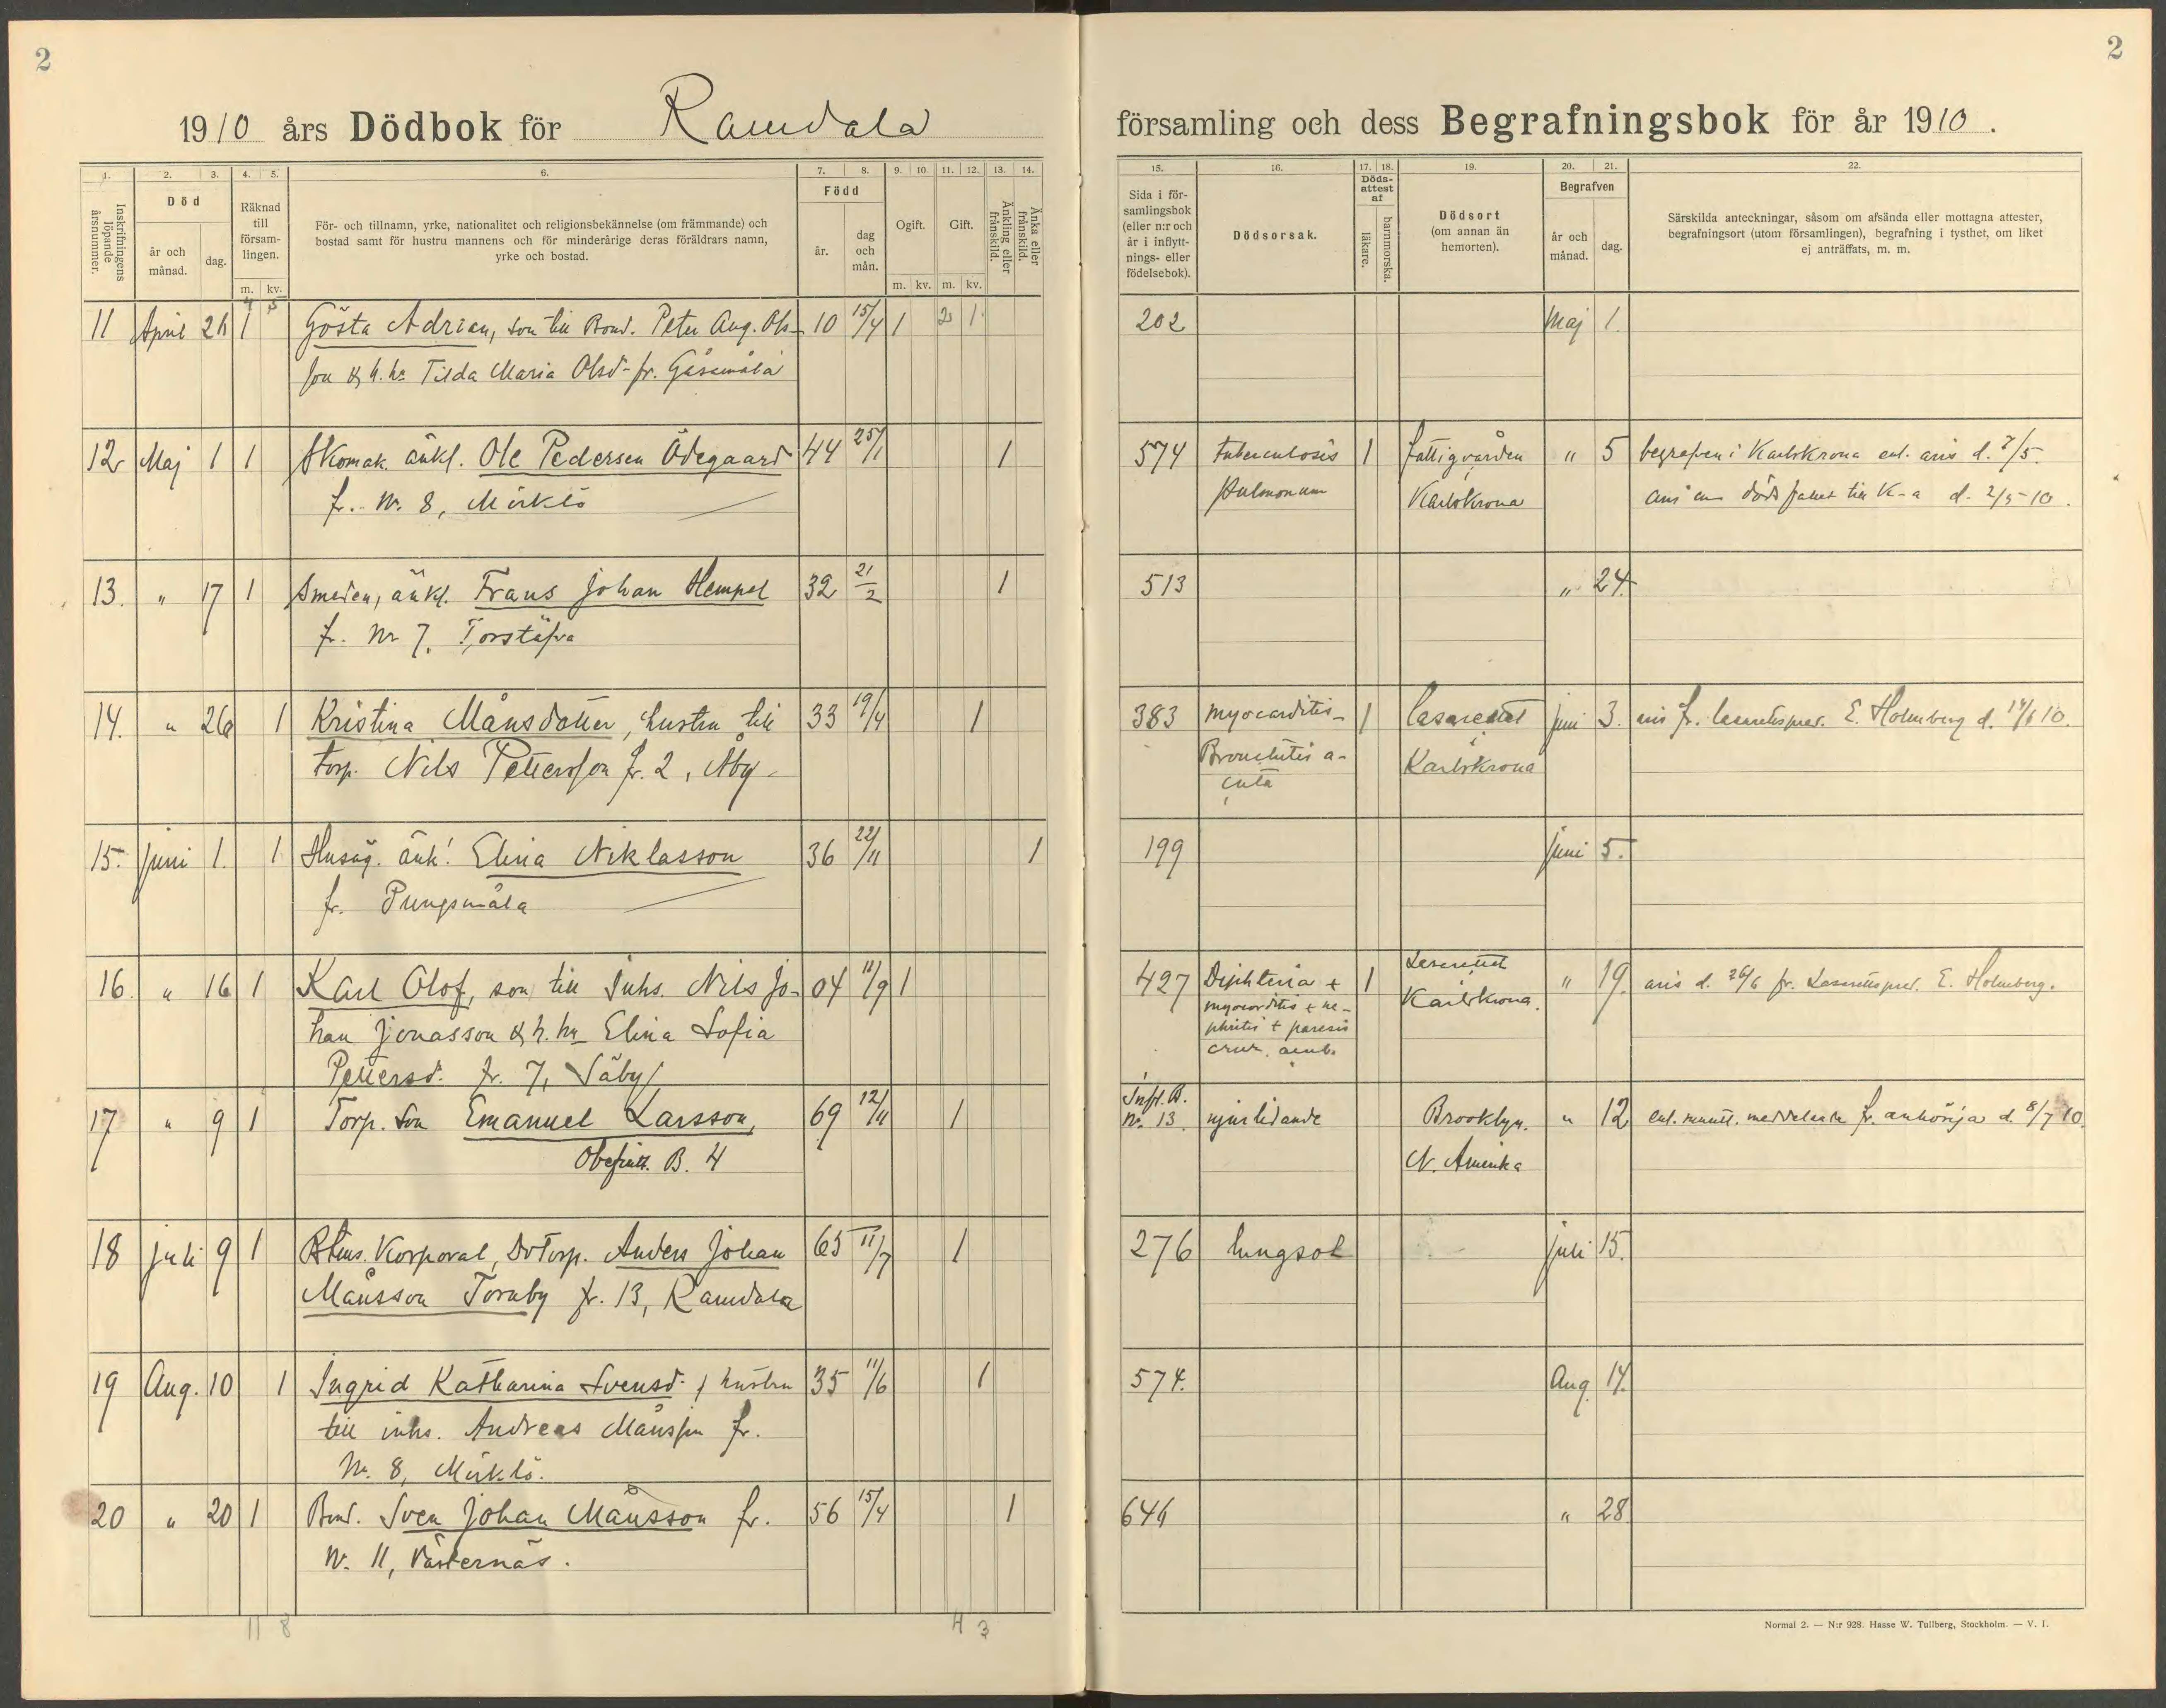 2
2
1910 års Dödbok för Ramdala
församling och dess Begrafningsbok för år 1910.
1. 2. 3. 4. 5. 6. 7. 8. 9. 10 11. 12. 13. 14.
Inskrifningens löpande årsnummer.
Död
år och månad.
dag.
Räknad till försam-lingen.
m. kv.
För- och tillnamn, yrke, nationalitet och religionsbekännelse (om främmande) och
bostad samt för hustru mannens och för minderårige deras föräldrars namn,
yrke och bostad.
Född
år.
dag och mån.
Ogift.
Gift.
m. kv. m. kv.
Änkling eller frånskild.
Änka eller frånskild.
15. 16. 17. 18. 19. 20. 21. 22.
Sida i för-
samlingsbok
(eller n:r och
år i inflytt-
nings- eller
födelsebok).
Dödsorsak.
Döds-
attest
af
läkare.
barnmorska.
Dödsort
(om annan än
hemorten).
Begrafven
år och
månad.
dag.
Särskilda anteckningar, såsom om afsända eller mottagna attester,
begrafningsort (utom församlingen), begrafning i tysthet, om liket
ej anträffats, m. m.
4 5
11 April 26 1 Gösta Adrian, son till Bond. Peter Aug. Ols- 10 15/4 1 2 1 202 Maj 1.
son & h. hu Tilda Maria Olsd. fr. Gåsamåla
12 Maj 1 1 Skomak. änkl. Ole Pedersen Ödegaard 44 25/1 1 574 tuberculosis 1 fattigvården " 5 begrafven i Karlskrona enl. avis d. 7/5.
fr. Nr. 8, Mörklö pulmonum Karlskrona avis om dödsfallet till K-a d. 2/5-10.
13. " 17 1 Smeden, änkl. Frans Johan Hempel 32 21/2 1 513 " 24.
fr. Nr 7, Torstäfva
14. " 26 1 Kristina Månsdotter, hustru till 33 19/4 1 383 myocarditis- 1 lasarettet juni 3. avis fr. lasarettspred. E. Holmberg d. 14/6 10.
torp. Nils Pettersson fr. 2, Åby. Bronchitis a- i Karlskrona
cuta
15. juni 1. 1 Husäg. änk. Elina Niklasson 36 22/11 1 199 juni 5.
fr. Pungsmåla
16. " 16 1 Karl Olof, son till Inhs. Nils Jo- 04 11/9 1 427 Diphteria + 1 Lasarettet " 19. avis d. 26/6 fr. Lasarettspred. E. Holmberg.
han Jonasson & h. hu Elina Sofia myocarditis + ne- Karlskrona.
phritis + paresis
Pettersd. fr. 7, Säby crur. amb.
17 " 9 1 Torp. son Emanuel Larsson, 69 12/11 1 Infl. B. Nr. 13. njurlidande Brooklyn. " 12 enl. muntl. meddelande fr. anhöriga d. 8/7 10.
Obefintl. B. 4 N. Amerika
18 juli 9 1 Korporal, Torp. Anders Johan 65 11/7 1 276 lungsot juli 15.
Månsson Tornby fr. 13, Ramdala
19 Aug. 10 1 Ingrid Katharina Svensd., hustru 35 11/6 1 574. Aug. 14.
till inhs. Andreas Månsson fr.
Nr. 8, Mörklö.
20 " 20 1 Bond. Sven Johan Månsson fr. 56 15/4 1 646 " 28.
Nr. 11, Västernäs.
11 8 4 3
Normal 2. — N:r 928. Hasse W. Tullberg, Stockholm. — V. I.